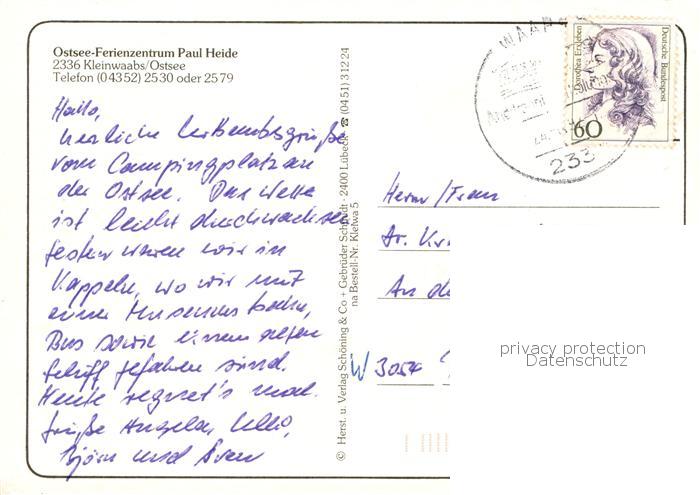 Ostsee-Ferienzentrum Paul Heide
2336 Kleinwaabs/Ostsee
Telefon (04352) 2530 oder 2579
Hallo,
herzliche Urlaubsgrüße
vom Campingplatz an
der Ostsee. Das Wetter
ist leicht durchwachsen
gestern waren wir in
Kappeln, wo wir mit
einer Museums bahn,
Bus sowie einem alten
Schiff gefahren sind.
Heute regnet's mal.
Grüße Angela, Ulli,
Björn und Sven
© Herst. u. Verlag Schöning & Co + Gebrüder Schmidt · 2400 Lübeck ☎ (0451) 31224
na Bestell-Nr. Kleiwa 5
WAABS
233
Dorothea Erxleben
Deutsche Bundespost
60
Herrn/Frau
Dr.
An de
W 3054
privacy protection
Datenschutz